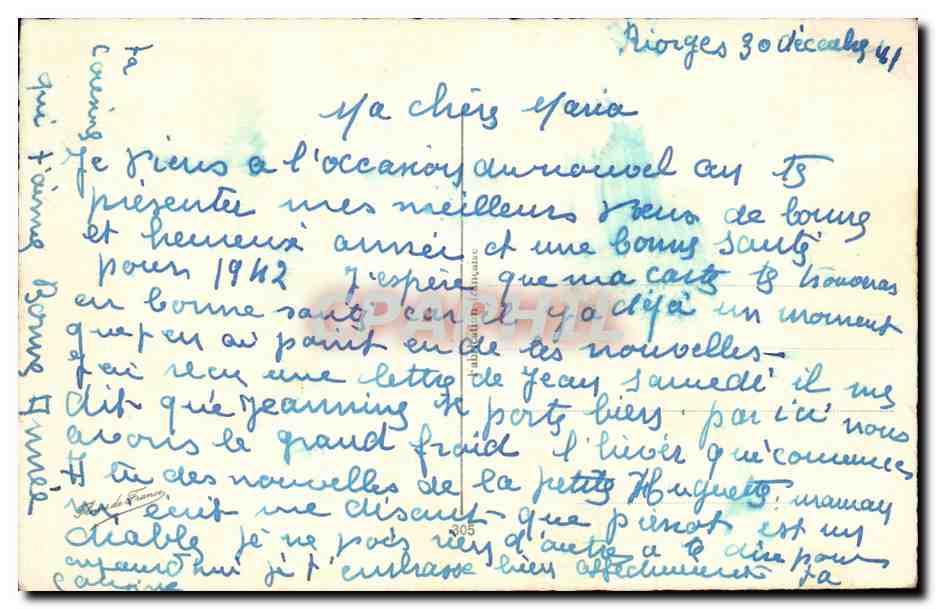 Riorges 30 décembre 41
Ma chère Maria
Je viens a l'occasion du nouvel an te
présenter mes meilleurs vœus de bonne
et heureuse année et une bonne santé
pour 1942 J'espère que ma carte te trouveras
en bonne santé car il y a déjà un moment
que j'en ai point eu de tes nouvelles-
J'ai reçu une lettre de Jean samedi il me
dit que Jeannine se porte bien. par ici nous
avons le grand froid l'hiver qui commence
A tu des nouvelles de la petite Huguette. maman
m'écrit me disant que pierrot est un
diable, je ne pois rien d'autre a te dire pour
aujourd'hui je t'embrasse bien affectueusement ta
cousine
ta
cousine
qui t'aime Bonne Année
Fabrication Française
305
CPAPHIL